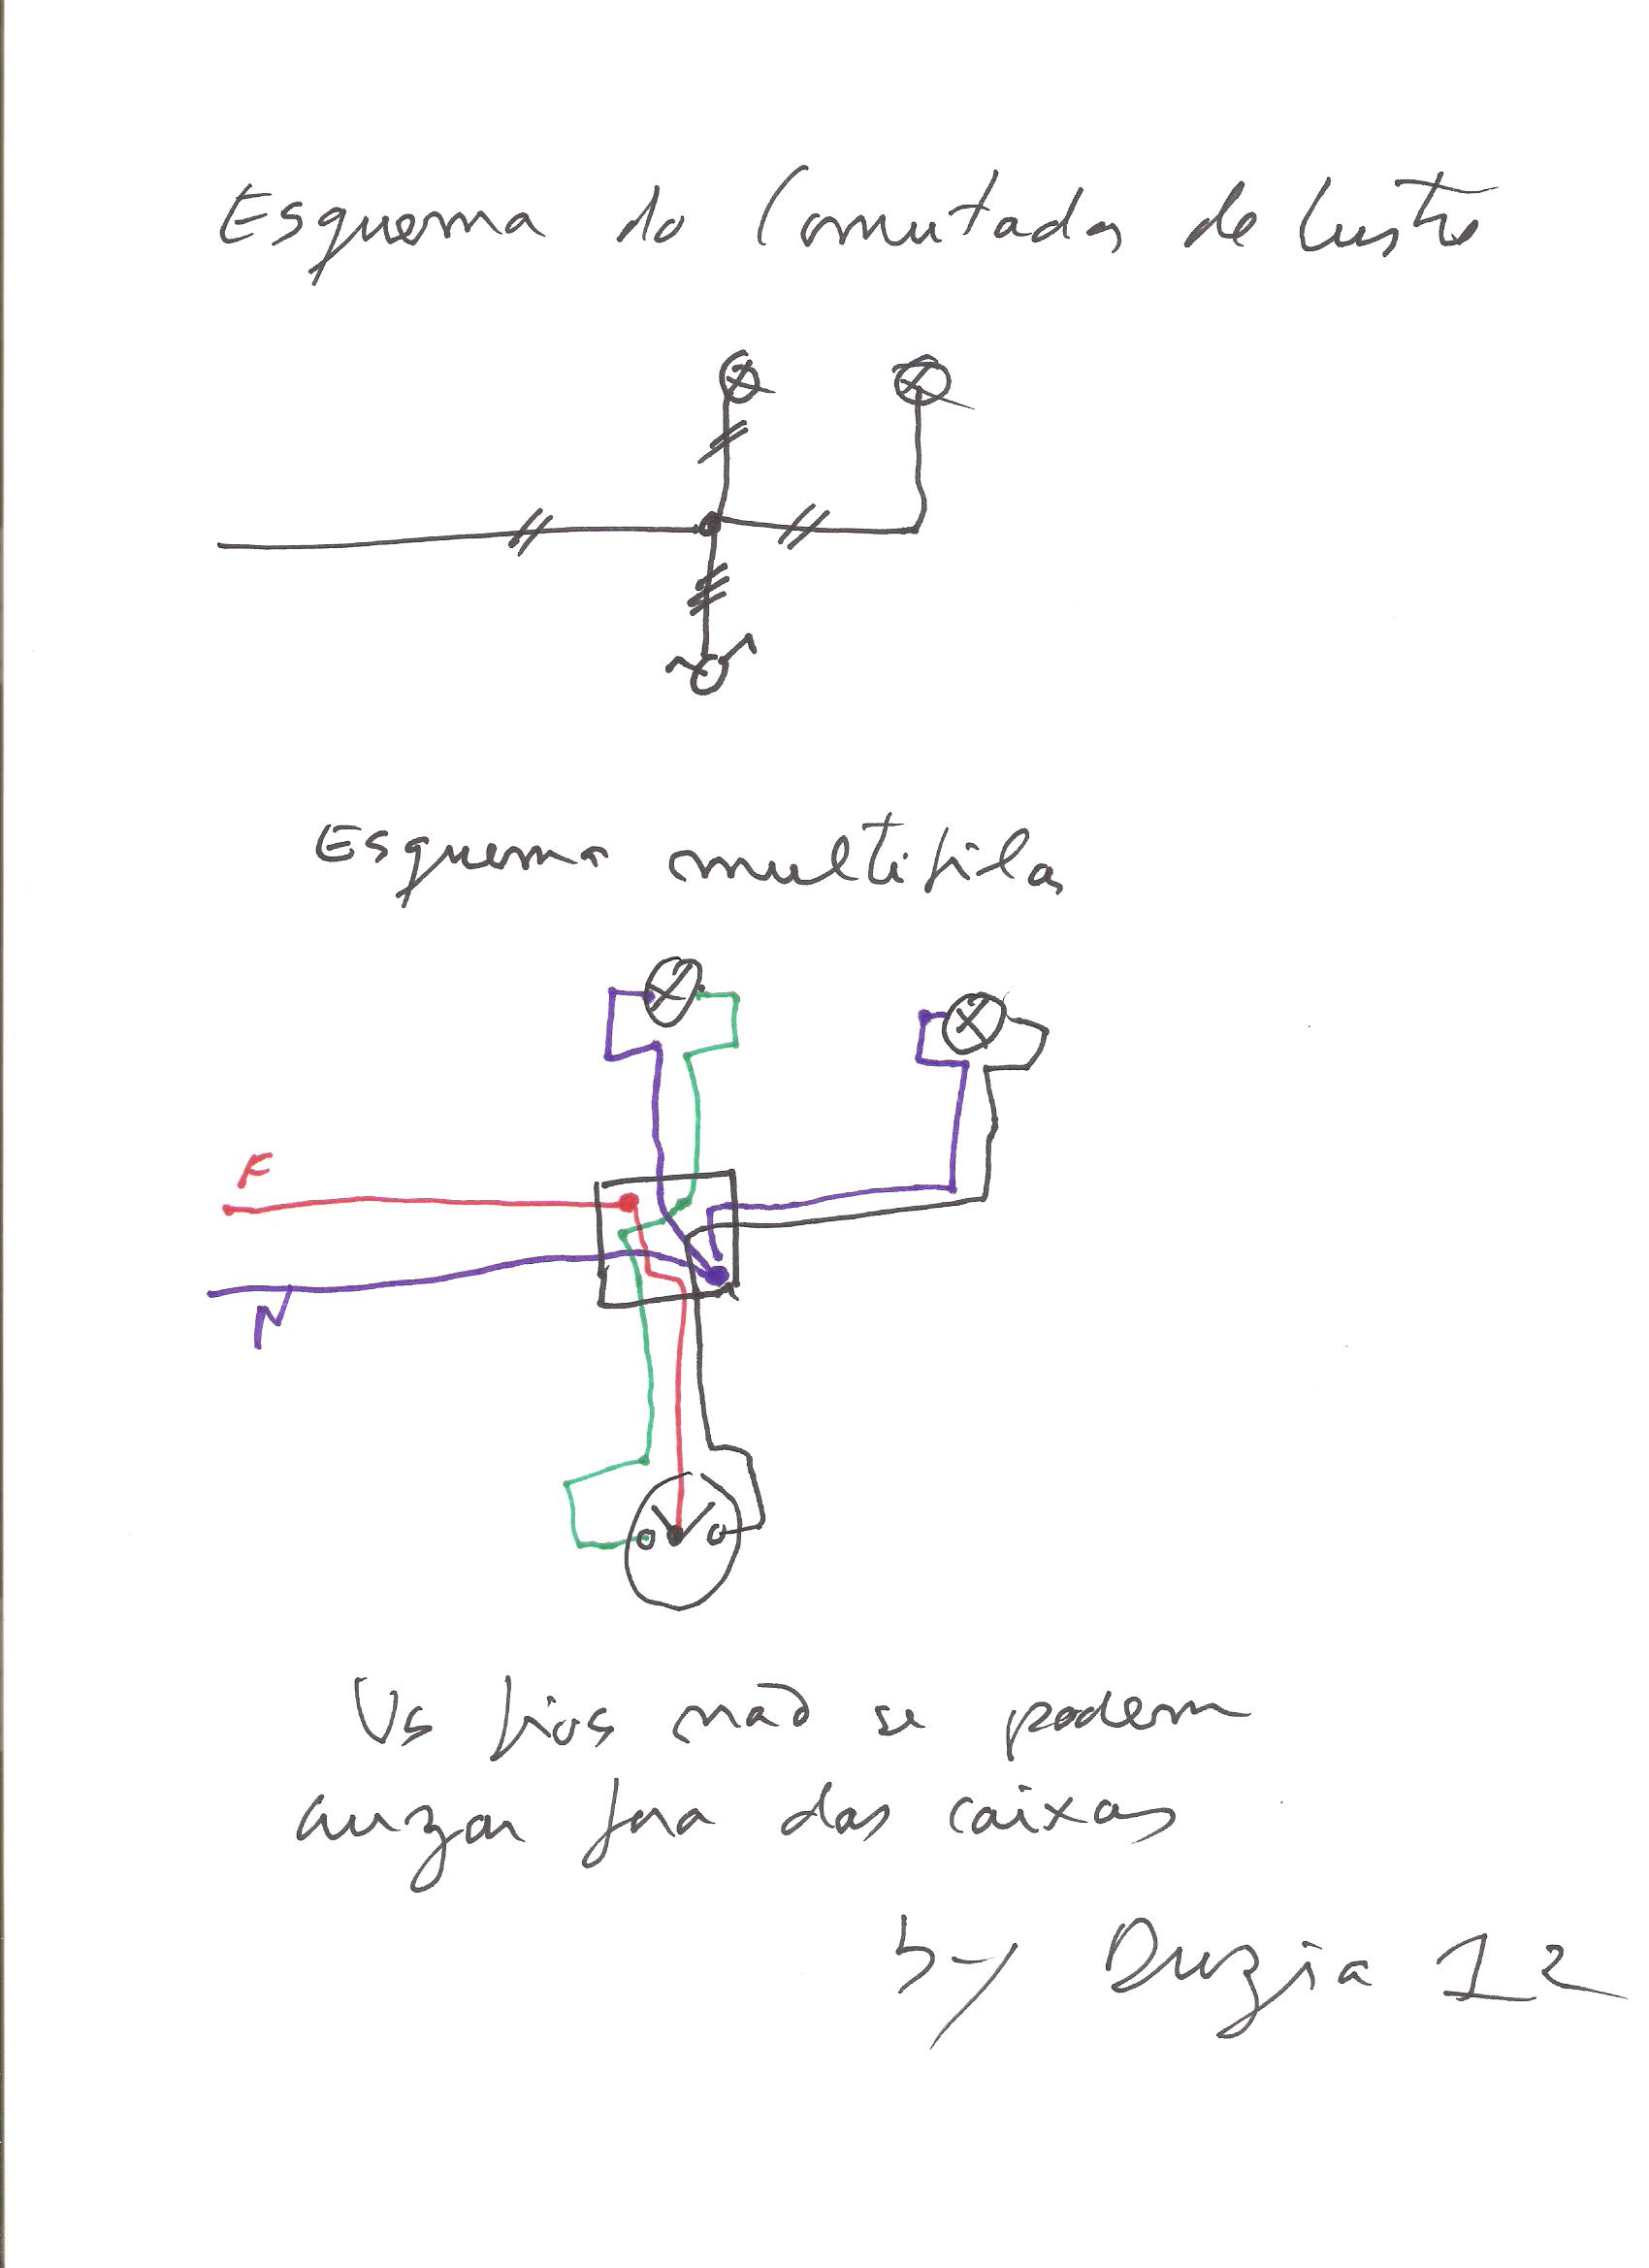 Esquema do Comutador de lustre
Esquema multifilar
F
N
Os fios não se podem
cruzar fora das caixas
by Duzia 12